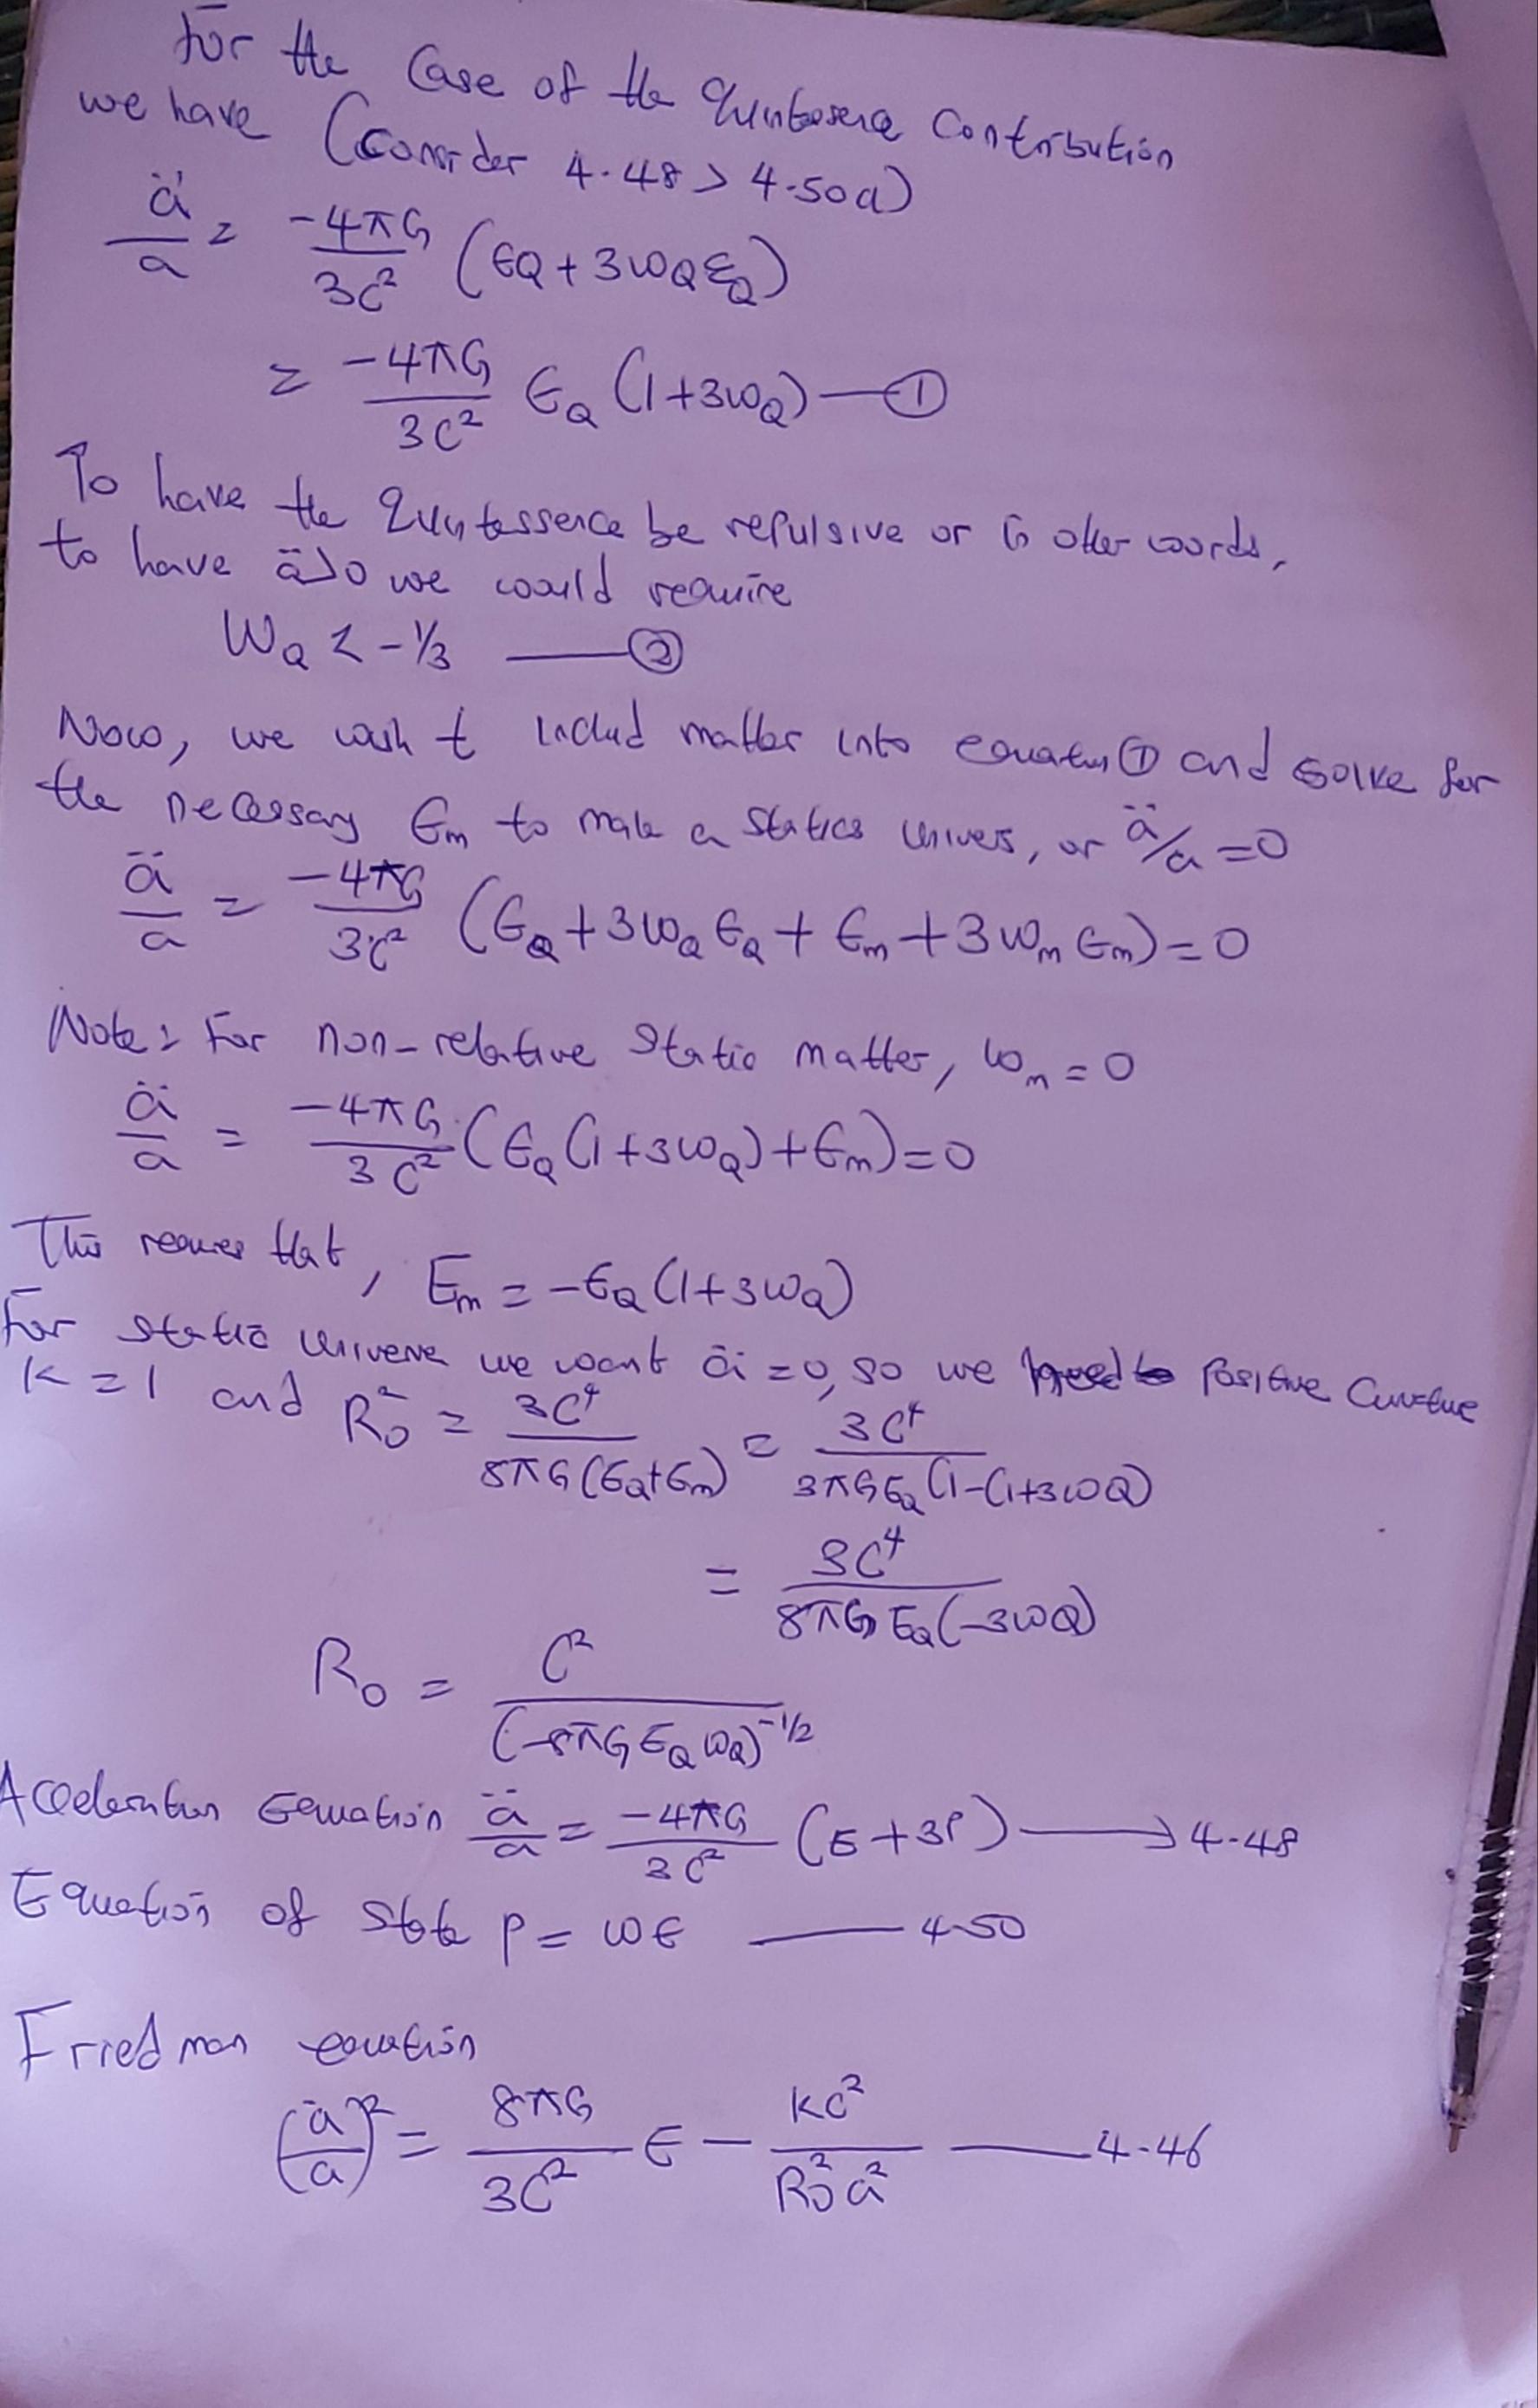 For the Case of the Quintesence Contribution
we have (Consider 4.48 > 4.50a)
ä/a = -4πG/3C² (ϵQ + 3ωQ ϵQ)
= -4πG/3C² ϵQ (1+3ωQ) — ①
To have the Quintessence be repulsive or in other words,
to have ä>0 we would require
WQ < -1/3 — ②
Now, we wish t includ matter into equation ① and solve for
the necessary ϵm to make a statics univers, or ä/a = 0
ä/a = -4πG/3C² (ϵQ + 3ωQ ϵQ + ϵm + 3ωm ϵm) = 0
Note: For non-relative Static matter, ωm = 0
ä/a = -4πG/3C² (ϵQ (1+3ωQ) + ϵm) = 0
This requires that, Em = -ϵQ (1+3ωQ)
For static universe we want ä = 0, so we need to Positive Curvature
K = 1 and R₀² = 3C⁴/8πG(ϵQ+ϵm) = 3C⁴/3πGϵQ (1-(1+3ωQ)
= 3C⁴/8πG EQ(-3ωQ)
R₀ = C²/(-8πG ϵQ ωQ)^-1/2
Acceleration Equation ä/a = -4πG/3C² (ε + 3P) → 4.48
Equation of state P = ωϵ — 4.50
Friedman equation
(ȧ/a)² = 8πG/3C² ϵ - KC²/R₀²a² — 4.46